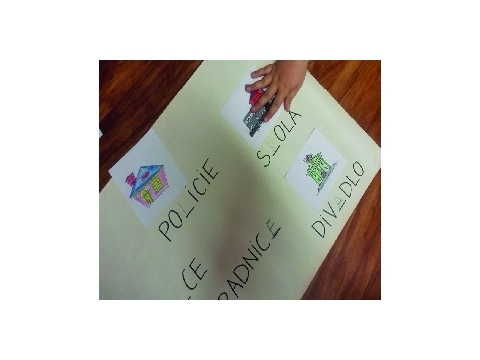 POLICIE
ŠKOLA
DIVADLO
CE
RADNICE